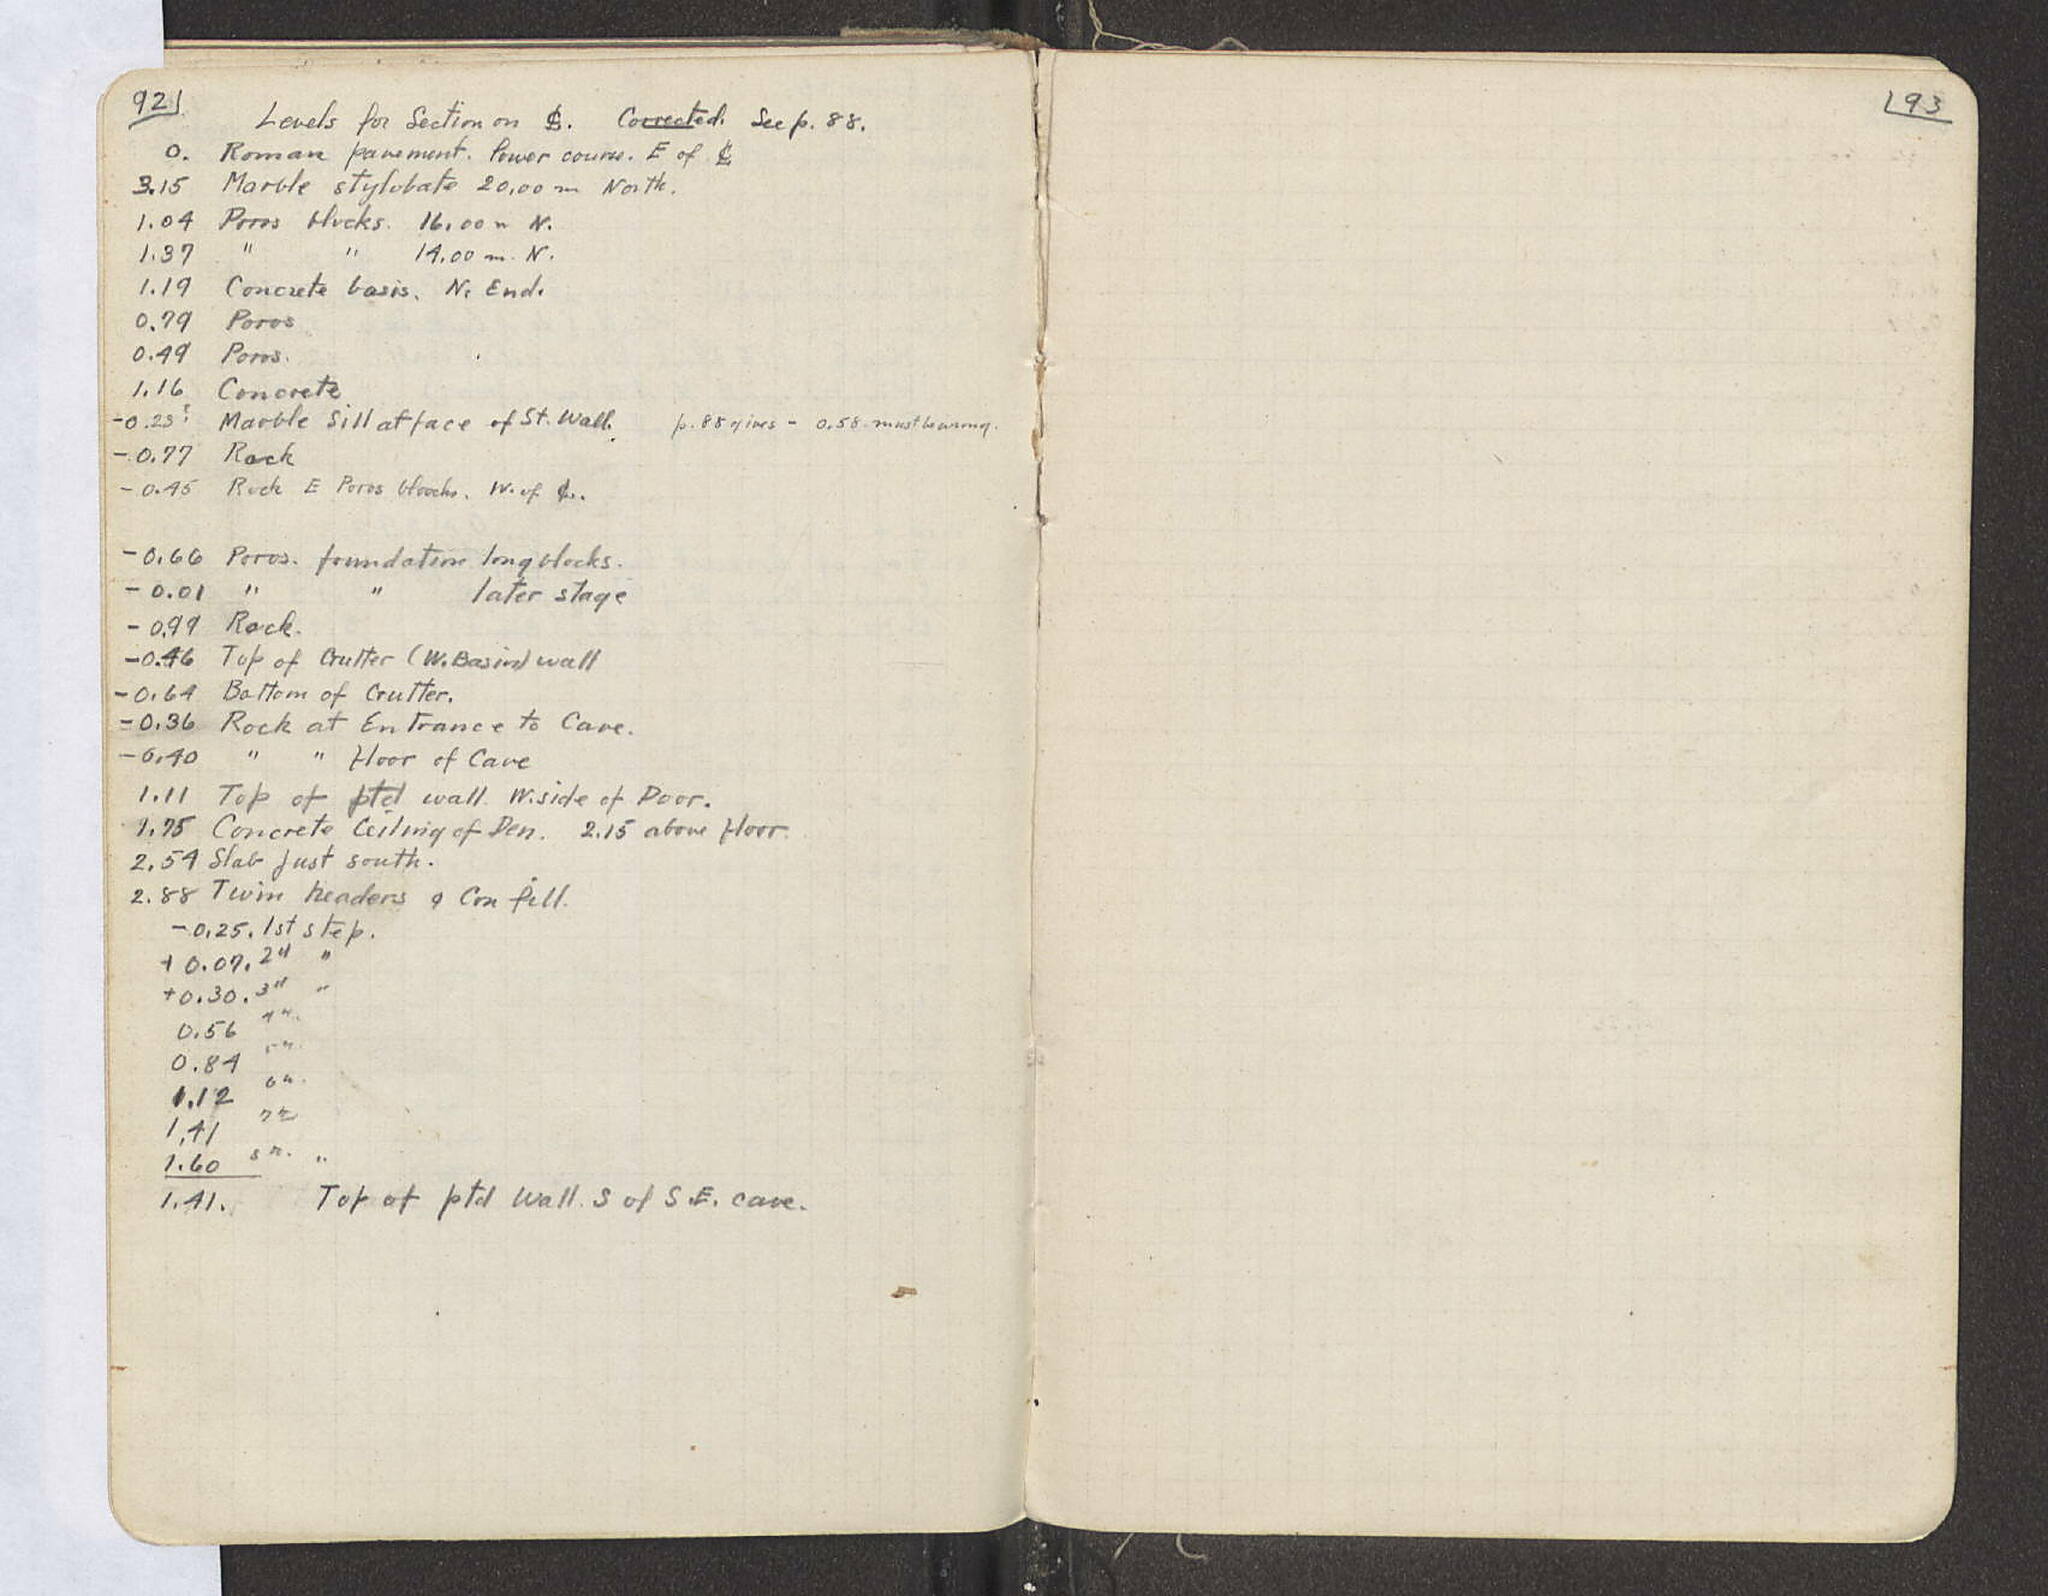 92
Levels for Section on ℄. Corrected. See p. 88.
0. Roman pavement. Lower course. E of ℄
3.15 Marble stylobate 20.00 m North.
1.04 Poros blocks. 16.00 m N.
1.37 " " 14.00 m. N.
1.19 Concrete basis. N. End.
0.79 Poros
0.49 Poros.
1.16 Concrete
-0.23 Marble Sill at face of St. Wall. p. 88 gives - 0.58 must be wrong.
-0.77 Rock
-0.45 Rock E Poros blocks. W. of ℄.
-0.66 Poros. foundation long blocks.
-0.01 " " later stage
-0.99 Rock.
-0.46 Top of Gutter (W. Basin) wall
-0.64 Bottom of Gutter.
-0.36 Rock at Entrance to Cave.
-0.40 " " floor of Cave
1.11 Top of ptd wall W. side of Door.
1.75 Concrete Ceiling of Den. 2.15 above floor.
2.54 Slab just south.
2.88 Twin headers & Con fill.
-0.25. 1st step.
+0.07. 2d "
+0.30. 3d "
0.56 4th.
0.84 5th.
1.12 6th.
1.41 7th
1.60 8th. "
1.41. Top of ptd Wall. S of S.E. cave.
93